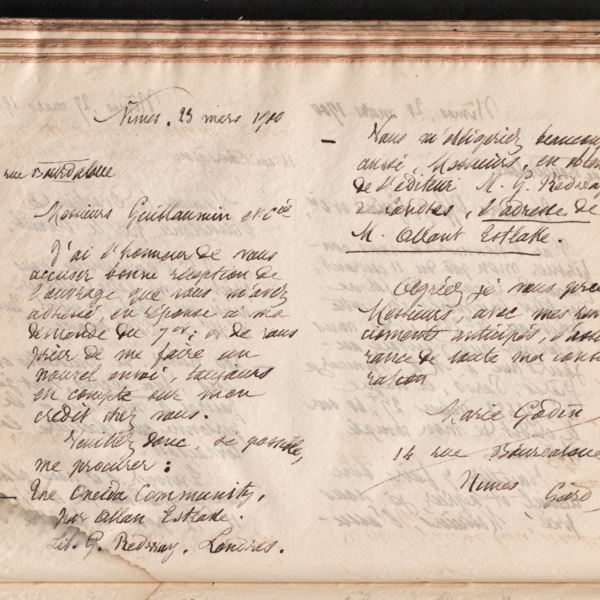 Nîmes. 23 mars 1900
rue Bourdaloue
Messieurs Guillaumin et Cie
J'ai l'honneur de vous
accuser bonne réception de
l'ouvrage que vous m'avez
adressé, en réponse à ma
demande du 7 cr; et de vous
prier de me faire un
nouvel envoi, toujours
en compte sur mon
crédit chez vous.
Veuillez donc, si possible,
me procurer :
– The Oneida Community,
par Allan Estlake.
Lib. G. Redway, Londres.
– Vous m'obligeriez beaucoup
aussi, Messieurs, en
de l'éditeur M. G. Redway
de Londres, l'adresse de
M. Allant Estlake.
Agréez je vous
Messieurs, avec mes
ciements anticipés,
rance de toute ma
ration
Marie Godin
14 rue Bourdaloue
Nîmes Gard